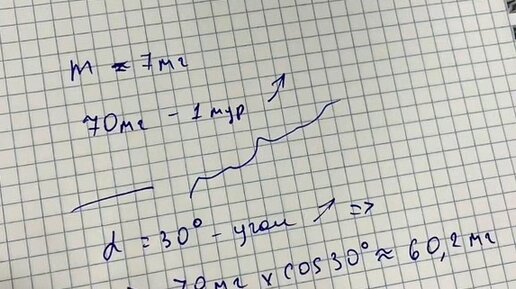 m = 7мг
70мг - 1 мур ↗
α = 30° - угол ↗ =>
70мг × cos 30° ≈ 60,2 мг